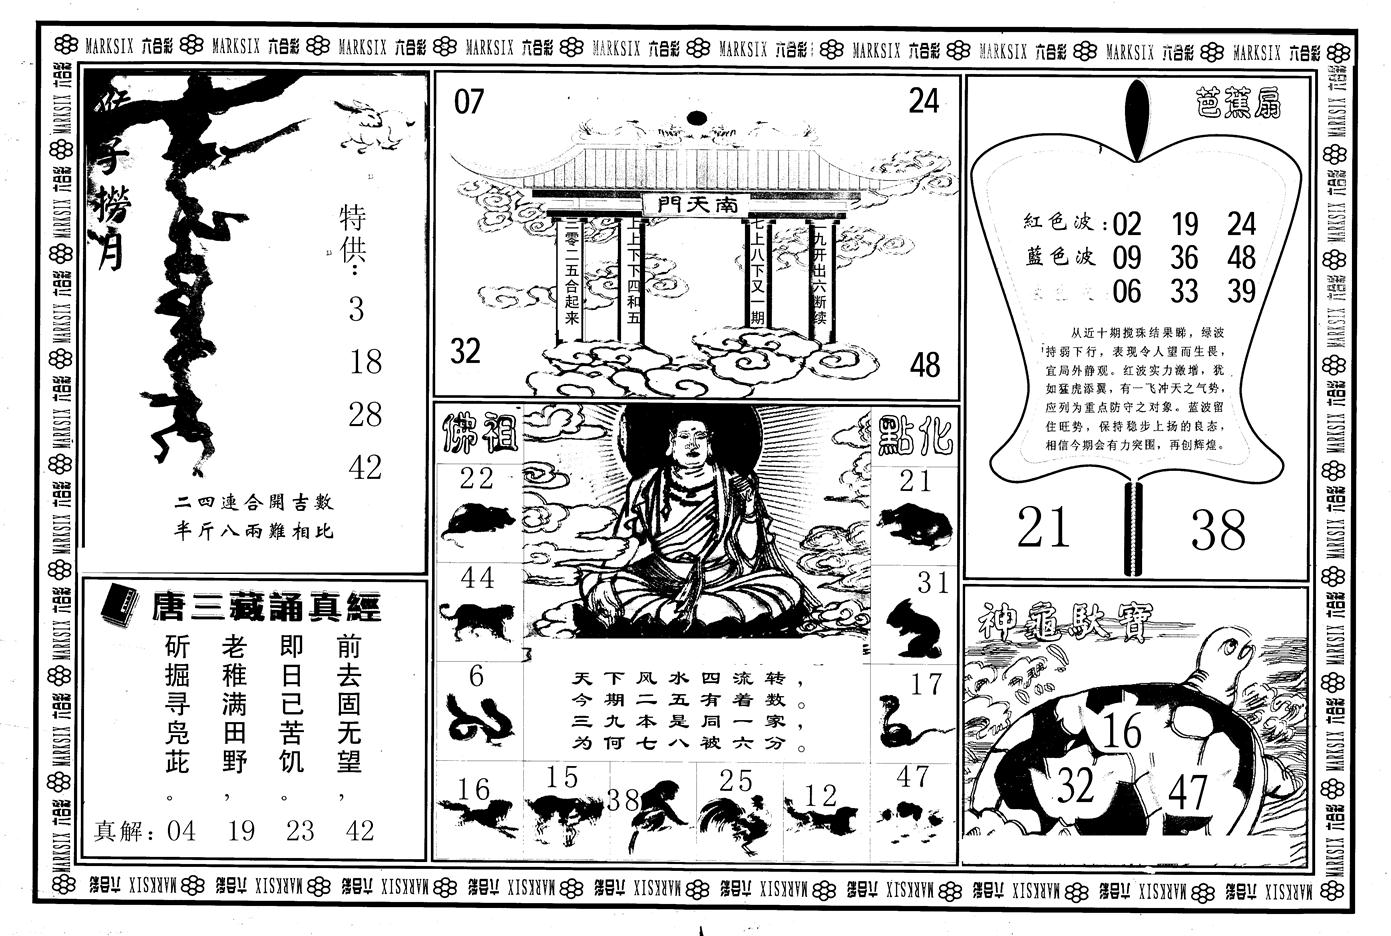 MARKSIX 六合彩 MARKSIX 六合彩 MARKSIX 六合彩 MARKSIX 六合彩 MARKSIX 六合彩 MARKSIX 六合彩 MARKSIX 六合彩 MARKSIX 六合彩 MARKSIX 六合彩 MARKSIX 六合彩
猴子撈月
特供：
3
18
28
42
二四連合開吉數
半斤八兩難相比
07
24
南天門
一九开出六断续
七上八下又一期
上上下下四和五
三零二二五合起来
32
48
芭蕉扇
紅色波：02 19 24
藍色波 09 36 48
06 33 39
从近十期搅珠结果睇，绿波
持弱下行，表现令人望而生畏，
宜局外静观。红波实力激增，犹
如猛虎添翼，有一飞冲天之气势，
应列为重点防守之对象。蓝波留
住旺势，保持稳步上扬的良态，
相信今期会有力突围，再创辉煌。
21
38
佛祖
點化
22
21
44
31
6
17
天下风水四流转，
今期二五有着数。
三九本是同一家，
为何七八被六分。
16
15
38
25
12
47
唐三藏誦真經
前去固无望，
即日已苦饥。
老稚满田野，
斫掘寻凫茈。
真解：04 19 23 42
神龜馱寶
16
32
47
MARKSIX 六合彩 MARKSIX 六合彩 MARKSIX 六合彩 MARKSIX 六合彩 MARKSIX 六合彩 MARKSIX 六合彩 MARKSIX 六合彩 MARKSIX 六合彩 MARKSIX 六合彩 MARKSIX 六合彩